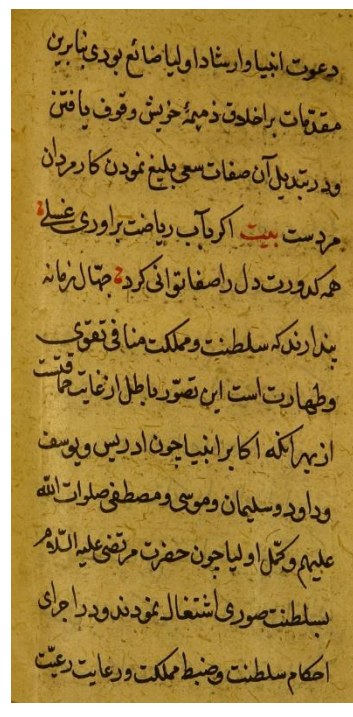 دعوت انبیا و ارشاد اولیا ضائع بودی بنابرین
مقدّمات بر اخلاق ذمیمهٔ خویش وقوف یافتن
و در تبدیل آن صفات سعی بلیغ نمودن کار مردان
مردست بیت اکر بآب ریاضت براوری غسلی
همه کدورت دل را صفا توانی کرد جهّال زمانه
پندارند که سلطنت و مملکت منافی تقوی
و طهارت است این تصوّر باطل از غایت حماقتست
از بهر انکه اکابر انبیا چون ادریس و یوسف
و داود و سلیمان و موسی و مصطفی صلوات الله
علیهم و کمّل اولیا چون حضرت مرتضی علیه السّلام
بسلطنت صوری اشتغال نمودند و در اجرای
احکام سلطنت و ضبط مملکت و رعایت رعیّت